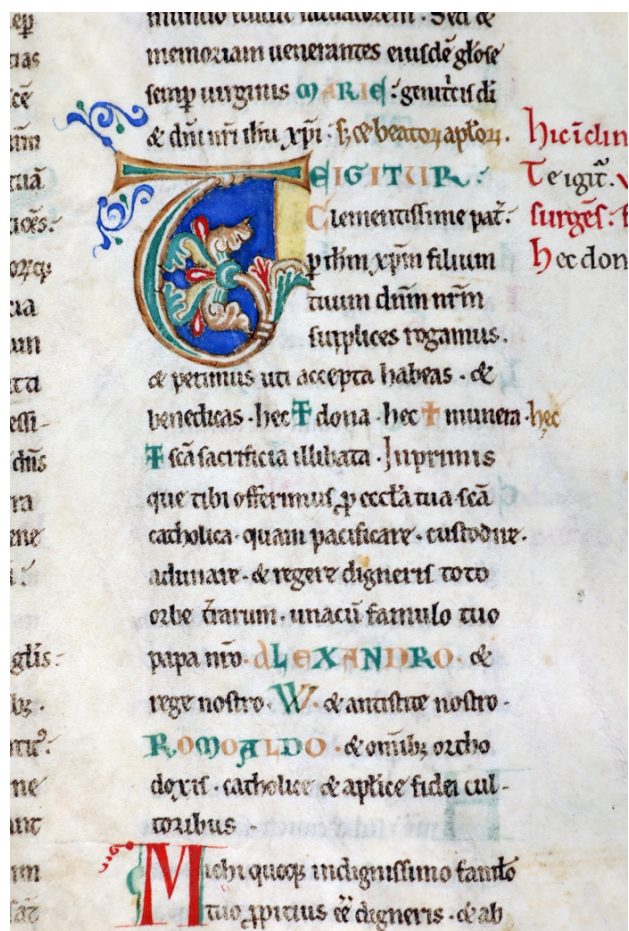 mundo edidit saluatorem. Sed &
memoriam uenerantes eiusdē glōse
semp uirginis MARIE: genitⁱcis dī
& dn̄i nr̄i ihū xp̄i: s; & beatoꝝ aplōꝝ.
TE IGITUR:
Clementissime pat̄:
ꝑ ihm̄ xpm̄ filium
tuum dnm̄ nrm̄
supplices rogamus.
& petimus uti accepta habeas. &
benedicas. hec ☩ dona. hec ☩ munera. hęc
☩ scā sacrificia illibata. Inprimis
que tibi offerimus ꝓ eccl̄a tua scā
catholica. quam pacificare. custodire.
adunare. & regere digneris toto
orbe t̄rarum. unacū famulo tuo
papa nrō. ALEXANDRO. &
rege nostro. W. & antistite nostro.
ROMOALDO. & omīb; ortho
doxis. catholice & aplice fidei cul-
toribus
Michi quoqꝫ indignissimo famlo
tuo ꝓpitius eē digneris. & ab
hic īclin
Te igit̄.
surgēs:
hec don
ep
tias
cē
uā
ices:
ua
un
ta
essi-
dn̄s
ra
ene
glīs:
bꝫ.
ne
ant